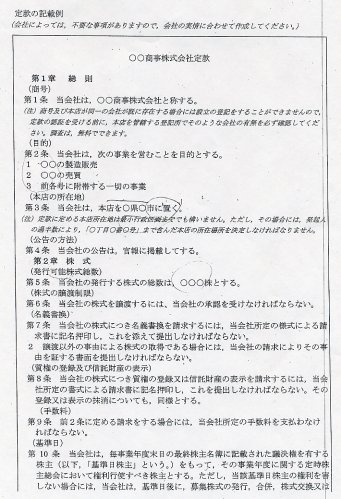 定款の記載例
(会社によっては,不要な事項がありますので,会社の実情に合わせて作成してください。)
○○商事株式会社定款
第1章 総 則
(商号)
第1条 当会社は,○○商事株式会社と称する。
(注)商号及び本店が同一の会社が既に存在する場合には設立の登記をすることができませんので,
定款の認証を受ける前に,本店を管轄する登記所でそのような会社の有無を必ず確認してくだ
さい。調査は,無料でできます。
(目的)
第2条 当会社は,次の事業を営むことを目的とする。
1 ○○の製造販売
2 ○○の売買
3 前各号に附帯する一切の事業
(本店の所在地)
第3条 当会社は,本店を○県○市に置く。
(注)定款に定める本店所在地は最小行政区画まででも構いません。ただし,その場合には,発起人
の過半数により,「○丁目○番○号」まで含んだ本店の所在場所を決定しなければなりません。
(公告の方法)
第4条 当会社の公告は,官報に掲載してする。
第2章 株 式
(発行可能株式総数)
第5条 当会社の発行する株式の総数は,○○○株とする。
(株式の譲渡制限)
第6条 当会社の株式を譲渡するには,当会社の承認を受けなければならない。
(名義書換)
第7条 当会社の株式につき名義書換を請求するには,当会社所定の様式による請
求書に記名押印し,これを添えて提出しなければならない。
2 譲渡以外の事由による株式の取得である場合には,当会社の請求によりその事
由を証する書面を提出しなければならない。
(質権の登録及び信託財産の表示)
第8条 当会社の株式につき質権の登録又は信託財産の表示を請求するには,当会
社所定の書式による請求書に記名押印し,これを提出しなければならない。その
登録又は表示の抹消についても,同様とする。
(手数料)
第9条 前2条に定める請求をする場合には,当会社所定の手数料を支払わなけ
ればならない。
(基準日)
第10条 当会社は,毎事業年度末日の最終株主名簿に記載された議決権を有する
株主(以下,「基準日株主」という。)をもって,その事業年度に関する定時株
主総会において権利行使すべき株主とする。ただし,当該基準日株主の権利を害
しない場合には,当会社は,基準日後に,募集株式の発行,合併,株式交換又は